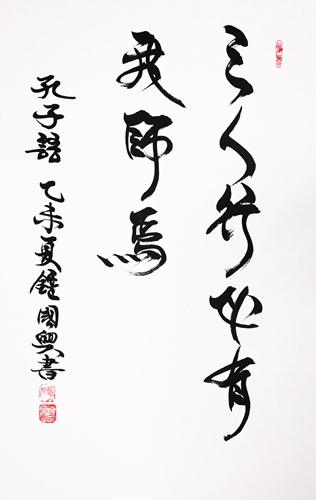 三人行必有
我師焉
孔子語 乙未夏鍾國興書